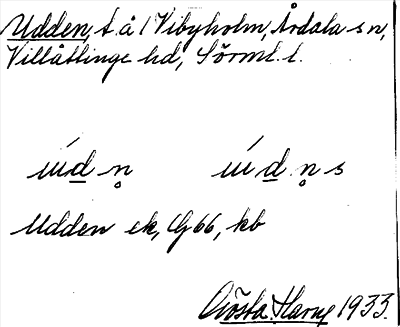 Udden, t. å 1 Vibyholm, Årdala sn,
Villåttinge hd, Sörml. l.
ú d n̥ ú d n̥ s
Udden ek, G 66, kb
Gösta Harne 1933.